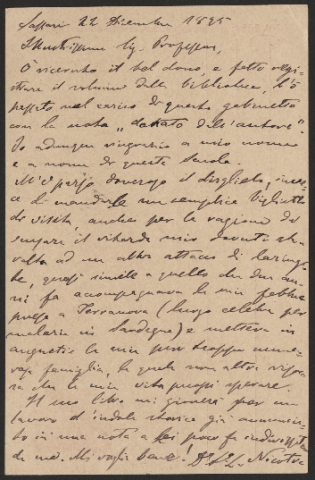 Sassari 22 Dicembre 1895
Illustrissimo Sig. Professore,
Ò ricevuto il bel dono, e fatto regi-
strare il volume della biblioteca, l'ò
passato nel carico di questo gabinetto
con la nota „donato dall'autore".
Io adunque ringrazio a mio nome
e a nome di questa Scuola.
M'è parso doveroso il biglietto, inve-
ce di mandarle un semplice biglietto
da visita, anche per la ragione di
scusare il ritardo mio dovuto
ad un altro attacco di laringi-
te, quasi simile a quello che due an-
ni fa accompagnava la mia febbre
presa a Terranova (luogo celebre per
malaria in Sardegna) e metteva in
angustie la mia pur troppo nume-
rosa famiglia, la quale non altra
che la mia vita può sperare.
Il suo libro mi gioverà per un
lavoro d'indole storica già annuncia-
to in una nota a
da me. Mi voglia bene! Nicotra